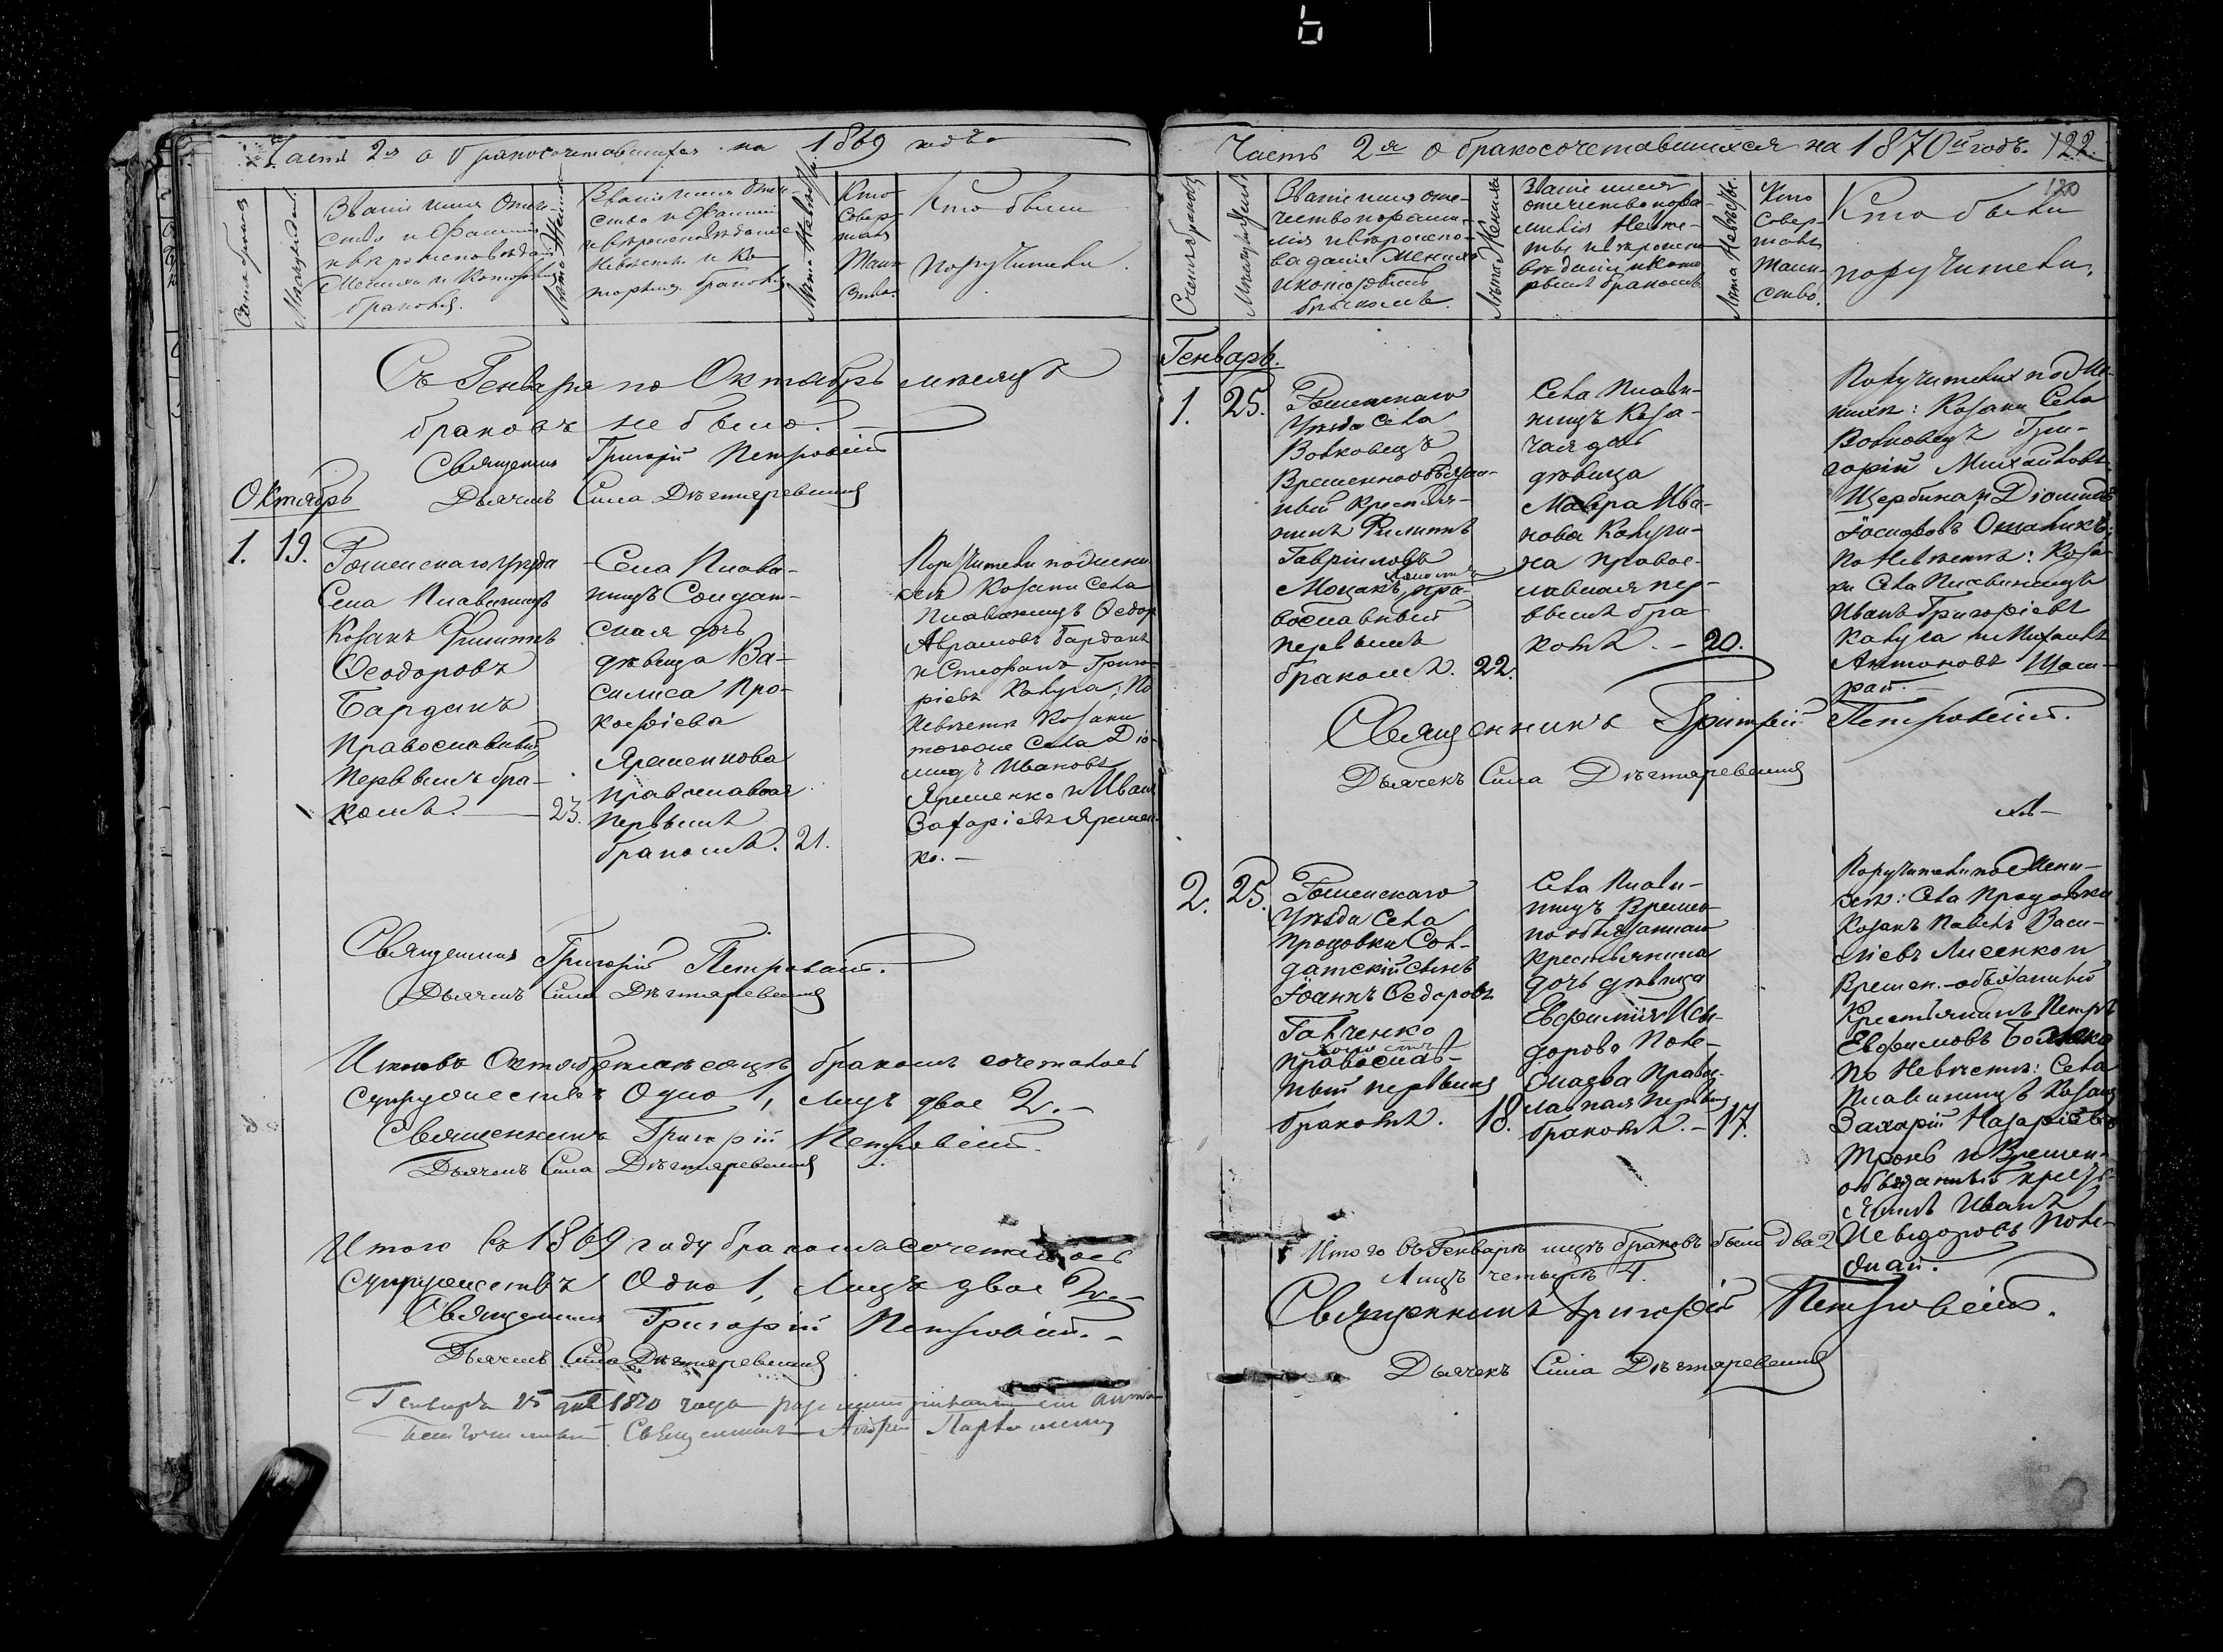 Часть 2я о бракосочетавшихся на 1869 годъ
Счетъ браковъ
Мѣсяцъ и день
Званіе имя Отче-
ство и Фамилія
и вѣроисповѣданіе
Жениха и Которымъ
бракомъ.
Лѣта Жениха
Званіе имя Отче-
ство и Фамилія
и вѣроисповѣданіе
Невѣсты и Ко-
торымъ бракомъ
Лѣта Невѣсты
Кто
Совер-
шалъ
Таин-
ство.
Кто были
поручители.
Съ Генваря по Октябрь мѣсяцъ
браковъ не было.
Священникъ Григорій Петровскій
Дьячекъ Сила Дѣхтяревскій
Октябрь
1. 19.
Роменскаго уѣзда
Села Плавинищъ
Козакъ Филиппъ
Феодоровъ
Барданъ
Православный
Первымъ бра-
комъ. 23.
Села Плави-
нищъ Солдат-
ская дочь
дѣвица Ва-
силиса Про-
кофіева
Яременкова
православная
первымъ
бракомъ. 21.
Поручители по жени-
хѣ Козаки Села
Плавинищъ Федоръ
Авраамовъ Барданъ
и Стефанъ Григо-
ріевъ Калуга; По
Невѣстѣ Козаки
тогоже Села Діо-
мидъ Ивановъ
Яременко и Иванъ
Захаріевъ Яремен-
ко.
Священникъ Григорій Петровскій.
Дьячекъ Сила Дѣхтяревскій
Итого въ Октябрѣ мѣсяцѣ бракомъ сочеталось
супружествъ Одно 1, лицъ двое 2.
Священникъ Григорій Петровскій.
Дьячекъ Сила Дѣхтяревскій
Итого въ 1869 году бракомъ сочеталось
супружествъ Одно 1, Лицъ двое 2.
Священникъ Григорій Петровскій.
Дьячекъ Сила Дѣхтяревскій
Генваря 25 дня 1870 года
Благочинный Священникъ
Часть 2я о бракосочетавшихся на 1870й годъ. 122.
120
Счетъ браковъ
Мѣсяцъ и день
Званіе имя оте-
чество и фами-
лія и вѣроиспо-
веданіе Жениха
и которымъ
бракомъ.
Лѣта Жениха
Званіе имя
отечество и фа-
милія Невѣ-
сты и вѣроиспо
вѣданіе и кото
рымъ бракомъ
Лѣта Невѣсты.
Кто
Совер-
шалъ
Таин-
ство.
Кто были
поручители.
Генварь.
1. 25.
Роменскаго
Уѣзда Села
Волковецъ
Временнообязан-
ный крестья-
нинъ Филиппъ
Гавріиловъ
Моцакъ, пра-
вославный
первымъ
бракомъ. 22.
Села Плави-
нищъ Коза-
чая дочь
дѣвица
Мавра Ива-
нова Калуги-
на правос-
лавная пер-
вымъ бра
комъ. 20.
Поручители по Же-
нихѣ: Козаки Села
Волковецъ Гри-
горій Михайловъ
Щербина и Діомидъ
Іосифовъ
По Невѣстѣ: Коза-
ки Села Плавинищъ
Иванъ Григоріевъ
Калуга и Михаилъ
Антоновъ
Священникъ Григорій Петровскій.
Дьячекъ Сила Дѣхтяревскій
2. 25.
Роменскаго
Уѣзда Села
Процовки Сол-
датскій сынъ
Іоаннъ Федоровъ
Галченко
православ-
ный первымъ
бракомъ. 18.
Села Плави-
нищъ Времен-
но обязаннаго
крестьянина
дочь дѣвица
Евфимія Иси-
дорова
Православная первымъ
бракомъ. 17.
Поручители по Жени-
хѣ: Села Процовки
Козакъ Павелъ Васи-
ліевъ Лисенко и
Времен.-обязанный
Крестьянинъ Петръ
Евфимовъ
По Невѣстѣ: Села
Плавинищъ Козакъ
Захарій Назаріевъ
и Времен-
обязанный кресть-
янинъ Иванъ
Итого въ Генварѣ мцѣ браковъ было два 2
Лицъ четыре 4.
Священникъ Григорій Петровскій.
Дьячекъ Сила Дѣхтяревскій